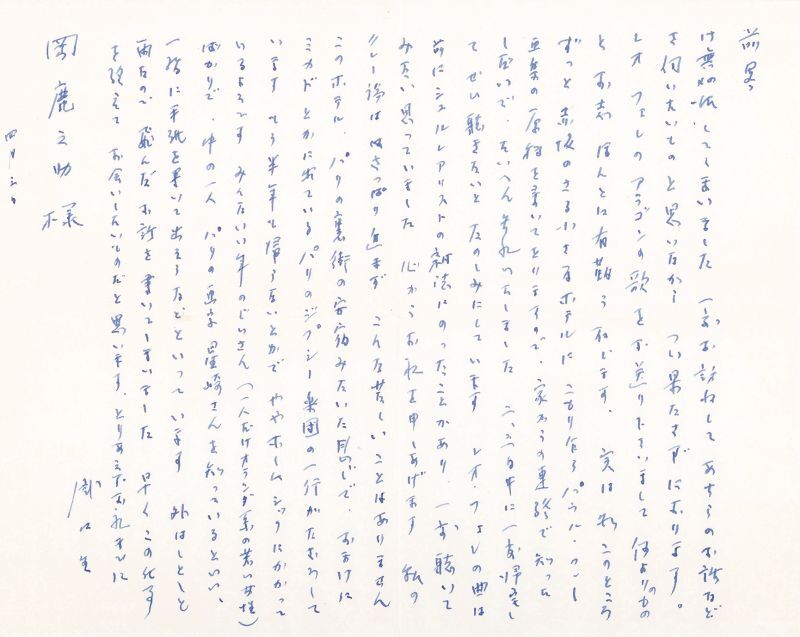 前略
御無沙汰してしまいました 一度お訪ねして あちらのお話など
を伺いたいものと思いながら つい果たさずにおります。
レオ フェレのアラゴンの歌をお送り下さいまして 何よりのもの
とお志 ほんとに有難う存じます。 実は私このところ
ずっと赤坂のさる小さなホテルに こもり乍らパウル・クレー
の原稿を書いておりますので、家からの連絡で知った
し だいで、たいへん失礼いたしました 二、三日中に一度帰宅し
て ぜひ聴きたいと たのしみにしています レオ・フェレの曲は
前にシュルレアリストの雑誌にのったことがあり、一度 聴いて
みたい 思っていました 心からお礼を申しあげます 私の
クレー論はさっぱり進まず こんな苦しいことはありません
このホテル、パリの裏街の安宿みたいた感じで、おまけに
ミカドとかに出ているパリのジプシー楽団の一行がたむろして
います もう半年も帰らないとかで ややホームシックにかかって
いるようです みんないい年のじいさん (一人だけオランダ系の若い女性)
ばかりで、中の一人 パリの画家 星崎さんを知っているといい、
一緒に手紙を書いて出そうなどといって います 外はしとしと
雨なので 飛んだお話を書いてしまいました 早くこの仕事
を終えて お会いしたいものだと思います。とりあえずお礼まで に
瀧口生
四月二日
岡鹿之助様